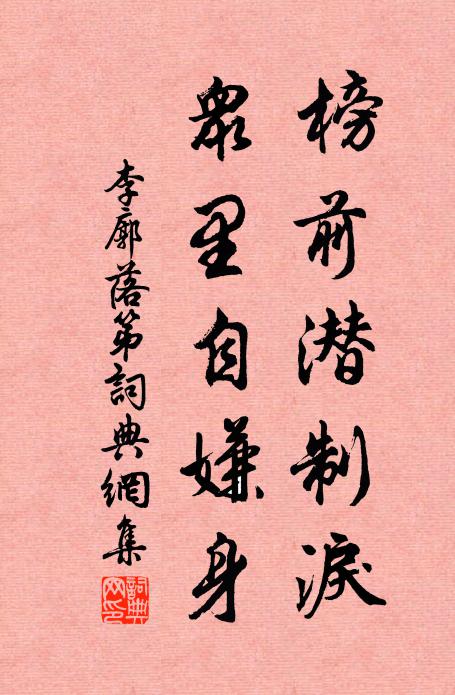 榜前潜制淚
眾里自嫌身
李廓落第詞典網集
詞典網印